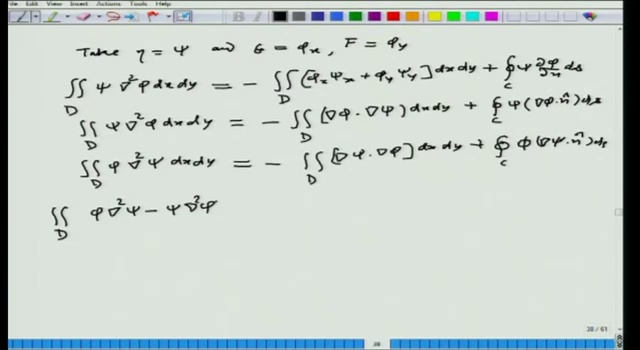 File Edit View Insert Actions Tools Help
Take η = ψ and G = φ_x, F = φ_y
∬_D ψ ∇²φ dx dy = - ∬_D [φ_x ψ_x + φ_y ψ_y] dx dy + ∮_C ψ ∂φ/∂n ds
∬_D ψ ∇²φ dx dy = - ∬_D (∇φ · ∇ψ) dx dy + ∮_C ψ (∇φ · n̂) ds
∬_D φ ∇²ψ dx dy = - ∬_D [∇φ · ∇φ] dx dy + ∮_C φ (∇ψ · n̂) ds
∬_D φ ∇²ψ - ψ ∇²φ
38 / 61
38